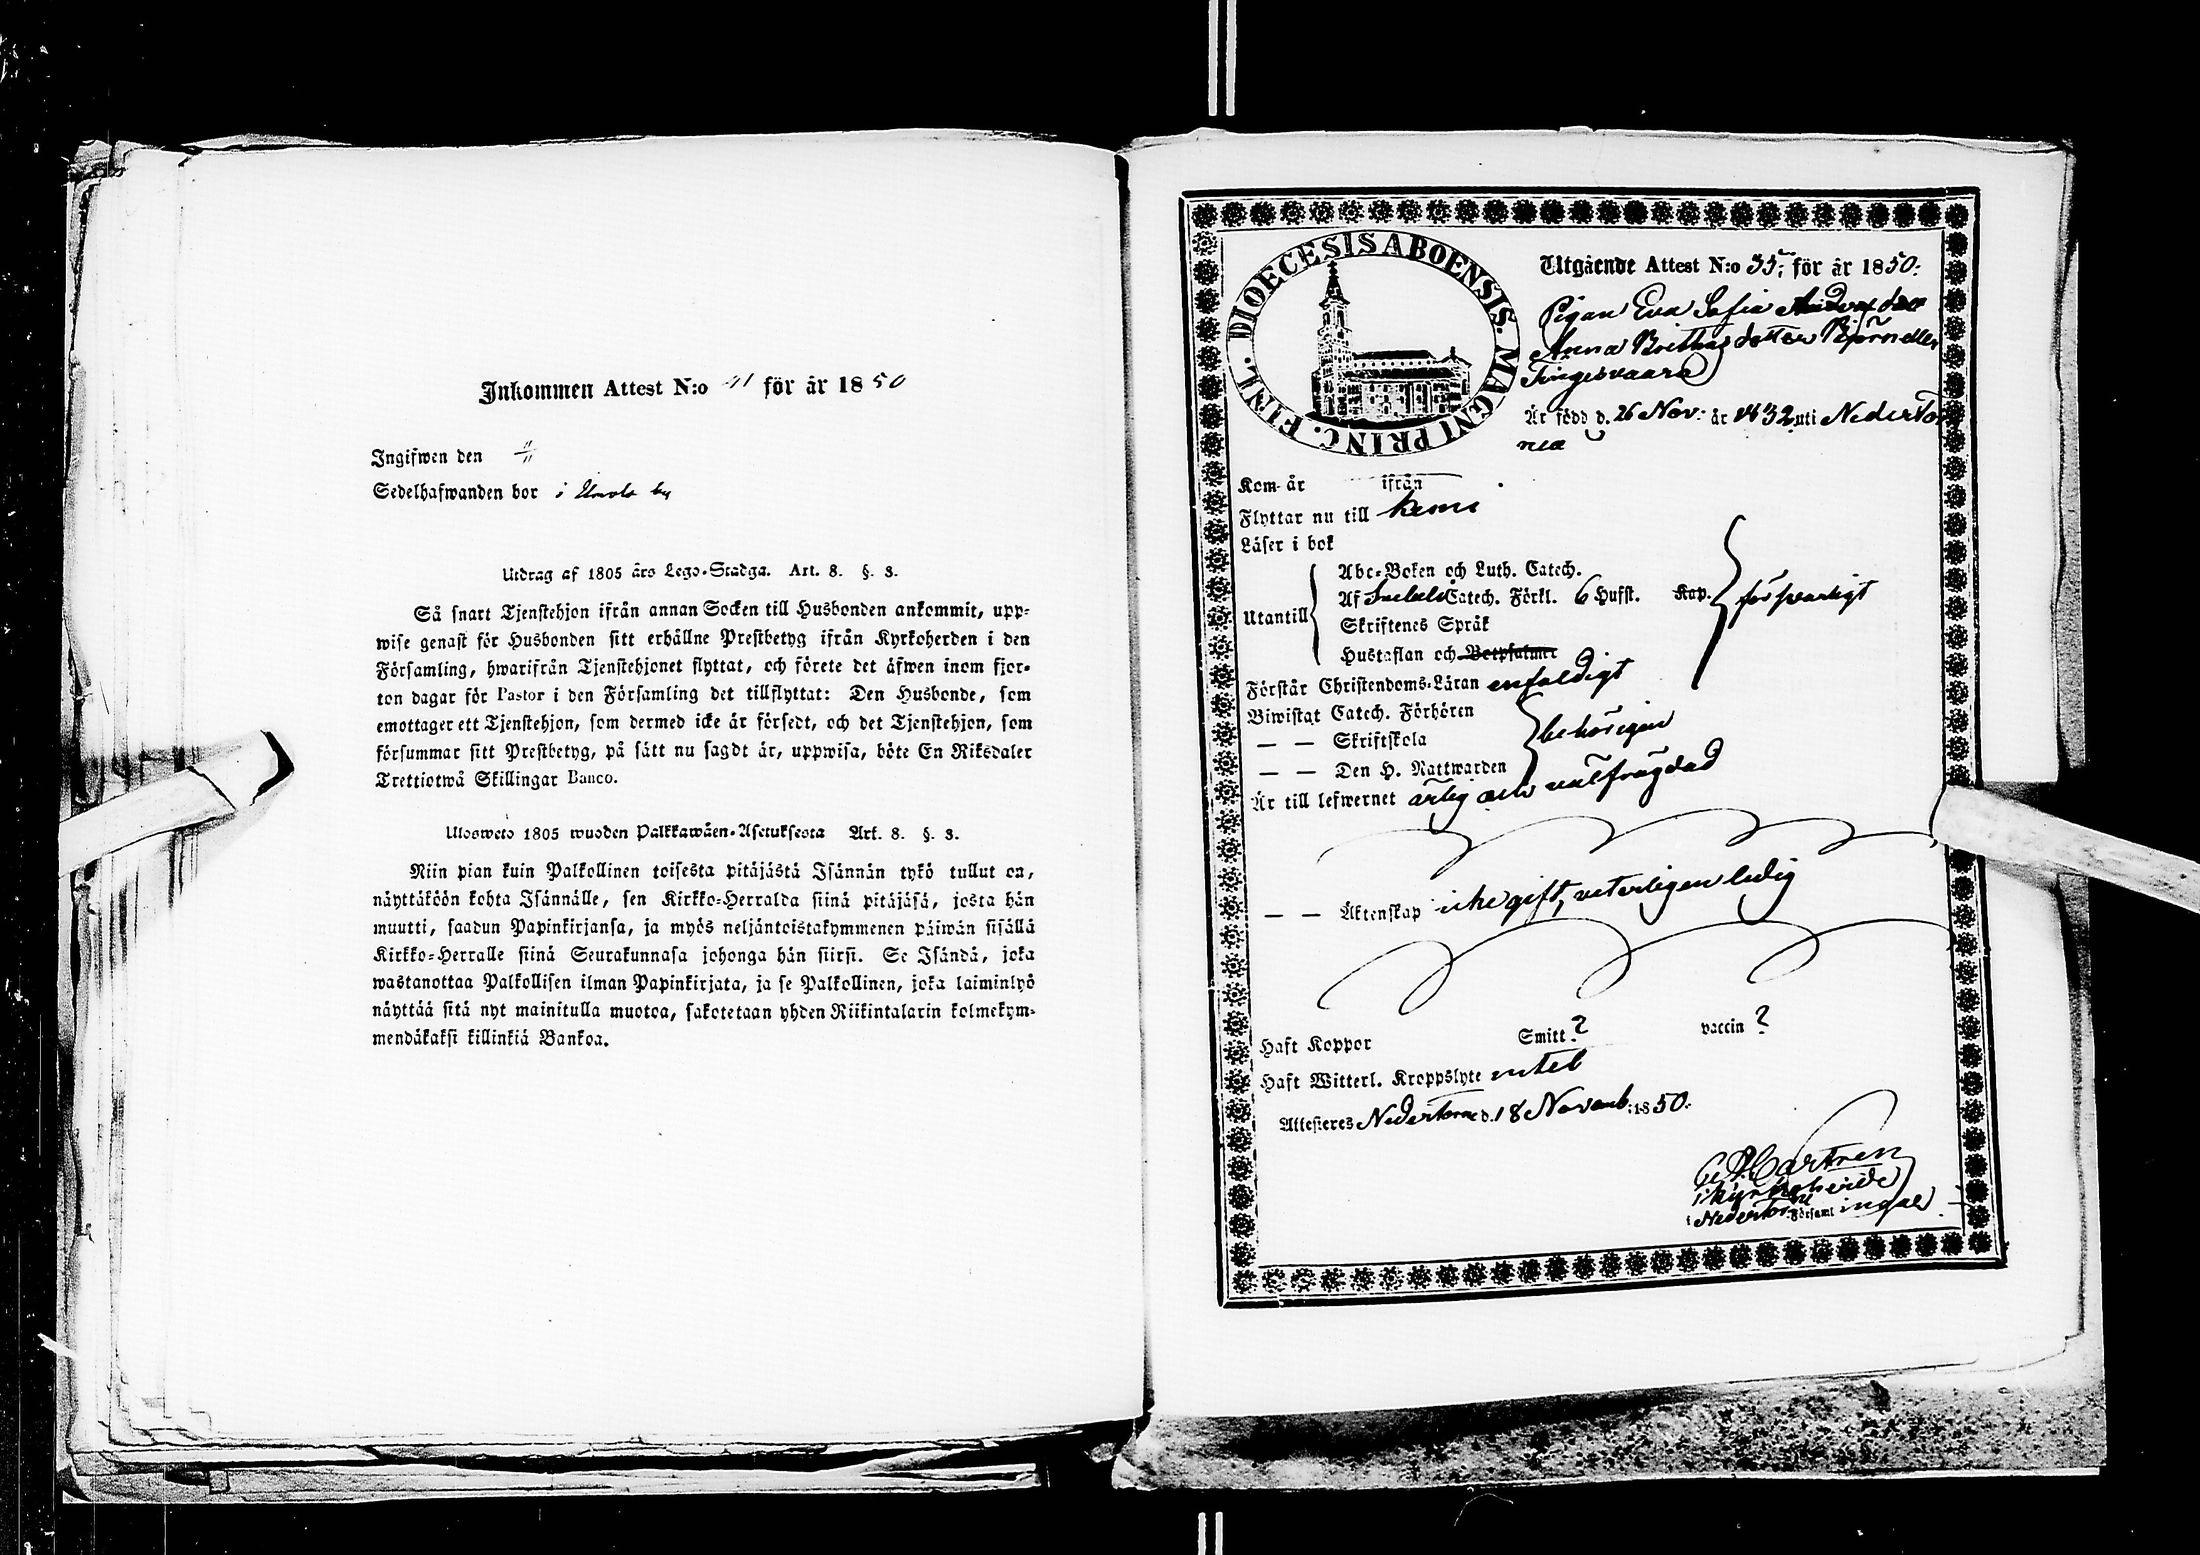 Inkommen Attest N:o 41 för år 1850
Ingifwen den
Sedelhafwanden bor i by
Utdrag af 1805 års Lego-Stadga. Art. 8. §. 3.
Så snart Tjenstehjon ifrån annan Socken till Husbonden ankommit, upp-
wise genast för Husbonden sitt erhållne Prestbetyg ifrån Kyrkoherden i den
Församling, hwarifrån Tjenstehjonet flyttat, och förete det äfwen inom fjor-
ton dagar för Pastor i den Församling det tillflyttat: Den Husbonde, som
emottager ett Tjenstehjon, som dermed icke är försedt, och det Tjenstehjon, som
försummar sitt Prestbetyg, på sätt nu sagdt är, uppwisa, böte En Riksdaler
Trettiotwå Skillingar Banco.
Ulosweto 1805 wuoden Palkkawäen-Asetuksesta Art. 8. §. 3.
Niin pian kuin Palkollinen toisesta pitäjästä Isännän tykö tullut on,
näyttäköön kohta Isännälle, sen Kirkko-Herralda siinä pitäjäsä, josta hän
muutti, saadun Papinkirjansa, ja myös neljäntoistakymmenen päiwän sisällä
Kirkko-Herralle siinä Seurakunnasa johonga hän siirsi. Se Isändä, joka
wastanottaa Palkollisen ilman Papinkirjata, ja se Palkollinen, joka laiminlyö
näyttää sitä nyt mainitulla muotoa, sakotetaan yhden Riikintalarin kolmekym-
mendäkaksi killinkiä Bankoa.
DIOECESIS ABOENSIS. MAGNI PRINC. FINL.
Utgående Attest N:o 35; för år 1850.
Pigan Eva Sofia
Anna Brithas dotter Björn eller
Tingesvaara
Är född d. 26 Nov: år 1832 uti Nedertor
nea
Kom år — ifrån —
Flyttar nu till Kemi
Läser i bok
Abc-Boken och Luth. Catech.
Utantill Af Svebeli Catech. Förkl. 6 Hufst. Kap. försvarligt
Skriftenes Språk
Hustaflan och Botpsalmer
Förstår Christendoms-Läran enfaldigt
Biwistat Catech. Förhören
— — Skriftskola behörigen
— — Den H. Nattwarden
Är till lefwernet ärlig och välfrägdad
— — Äktenskap icke gift, veterligen ledig
Haft Koppor Smitt? vaccin?
Haft Witterl. Kroppslyte intet
Attesteres Nedertorne d. 18 Novemb: 1850.
Castren
Kyrkoherde
i Nedertorne Församl ingar